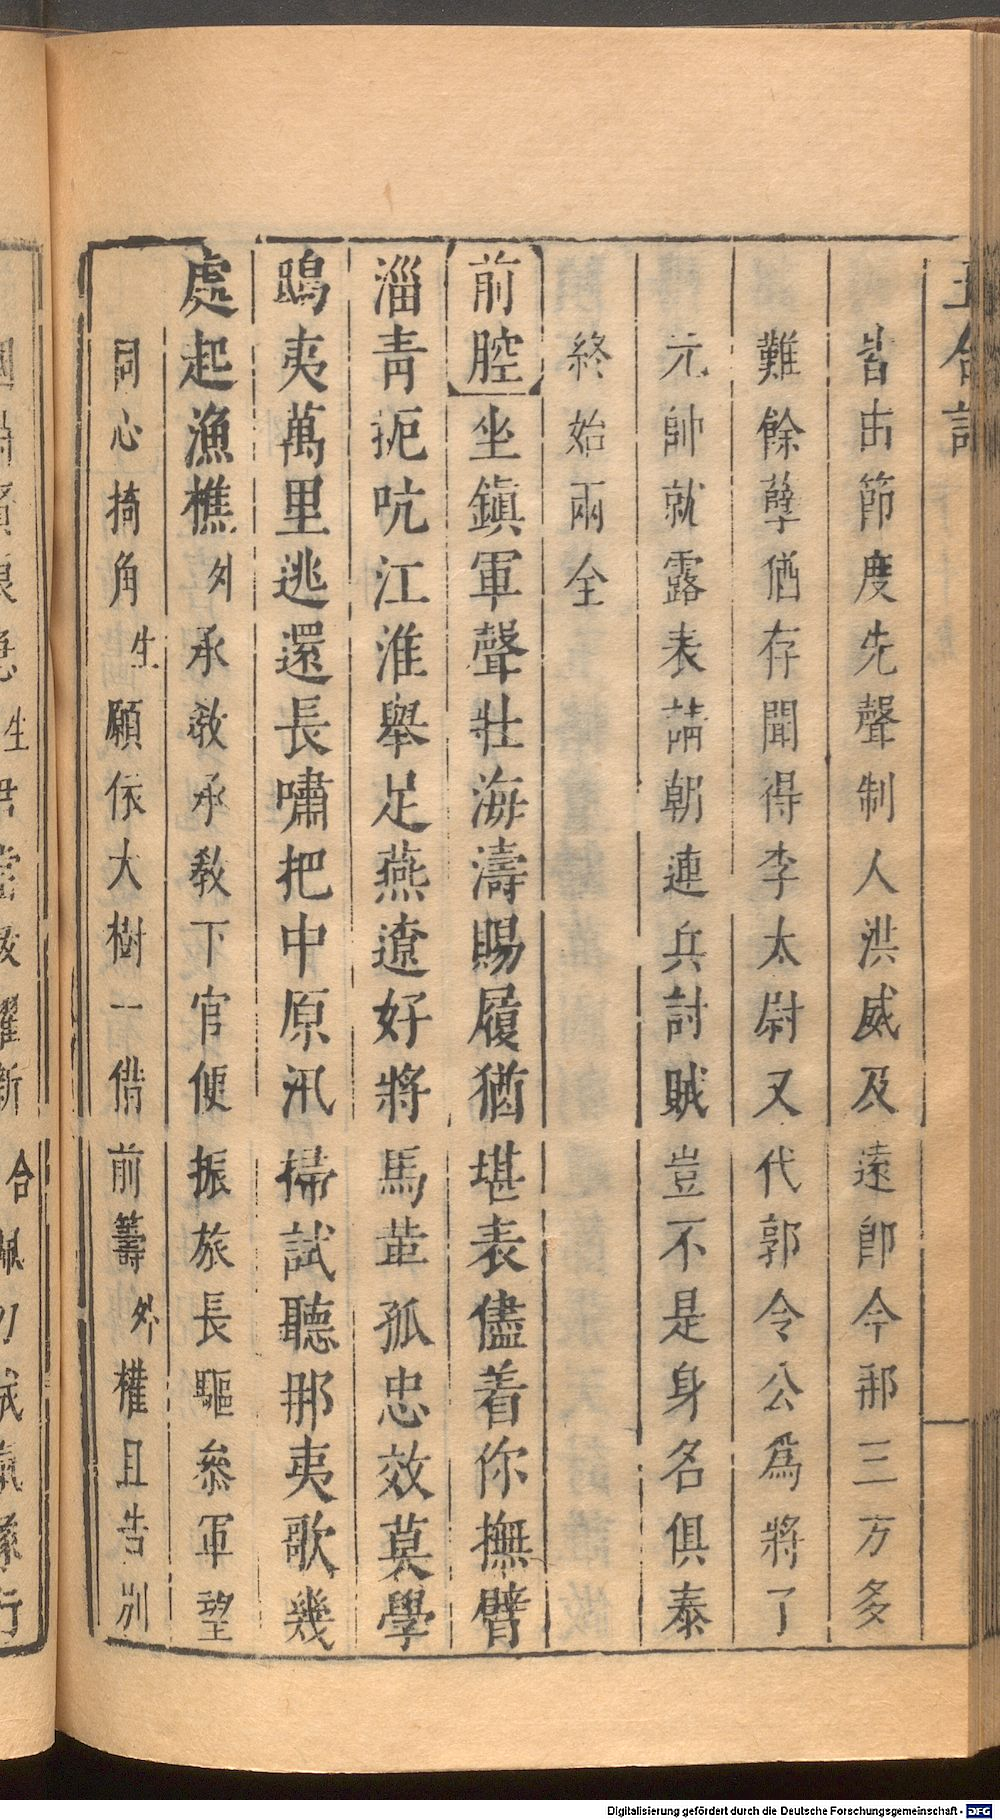 玉合記
皆由節度先聲制人洪威及遠即今那三方多
難餘孽猶存聞得李太尉又代郭令公爲將了
元帥就露表請朝連兵討賊豈不是身名俱泰
終始兩全
前腔坐鎮軍聲壯海濤賜履猶堪表儘着你撫臂
淄青扼吭江淮舉足燕遼好將馬革孤忠效莫學
鴟夷萬里逃還長嘯把中原汛掃試聽那夷歌幾
處起漁樵外承敎承敎下官便振旅長驅叅軍望
同心掎角生願依大樹一借前籌外權且告別
Digitalisierung gefördert durch die Deutsche Forschungsgemeinschaft - DFG